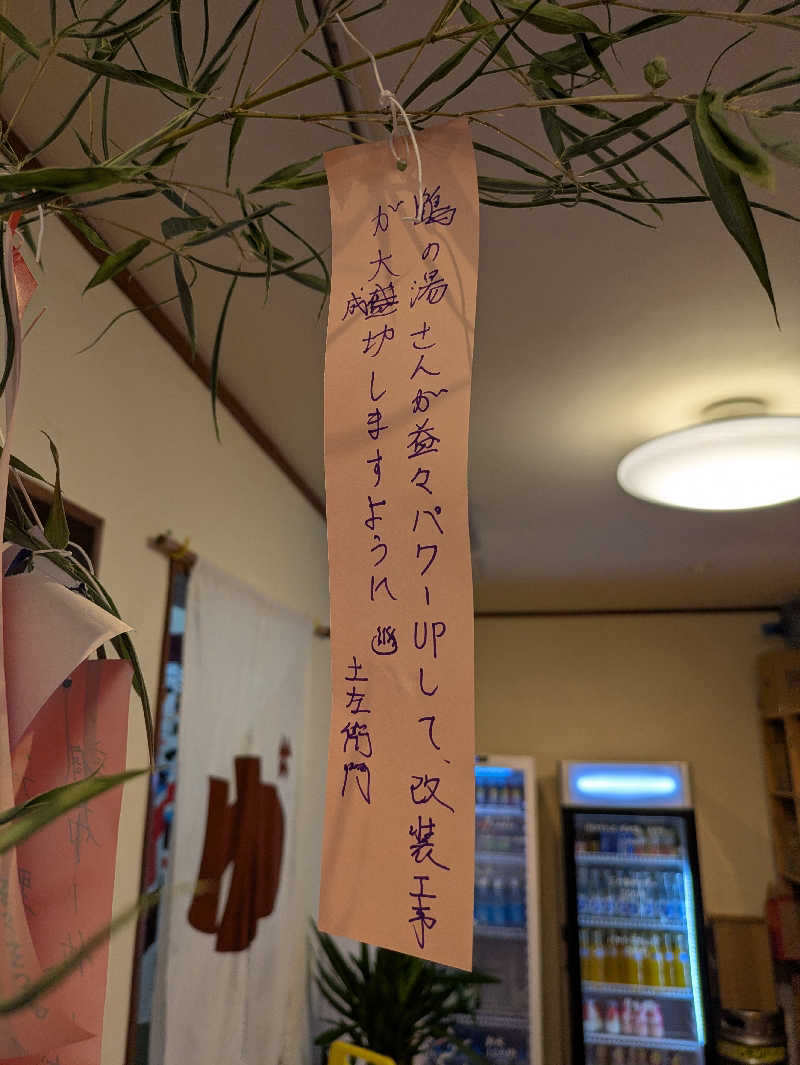 鶴の湯さんが益々パワーUPして、改装工事
が大成功しますように♨
土左衛門
ゆ